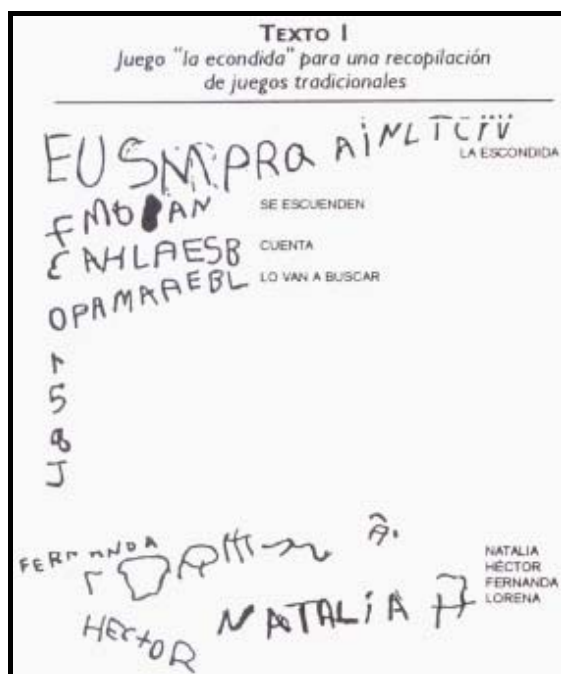 TEXTO I
Juego "la econdida" para una recopilación
de juegos tradicionales
EUSMPRA AiNLTCiV
LA ESCONDIDA
FMO AN SE ESCUENDEN
CAHLAESB CUENTA
OPAMAAEBL LO VAN A BUSCAR
1
5
8
J
FERNANDA
HECTOR NATALiA
NATALIA
HÉCTOR
FERNANDA
LORENA